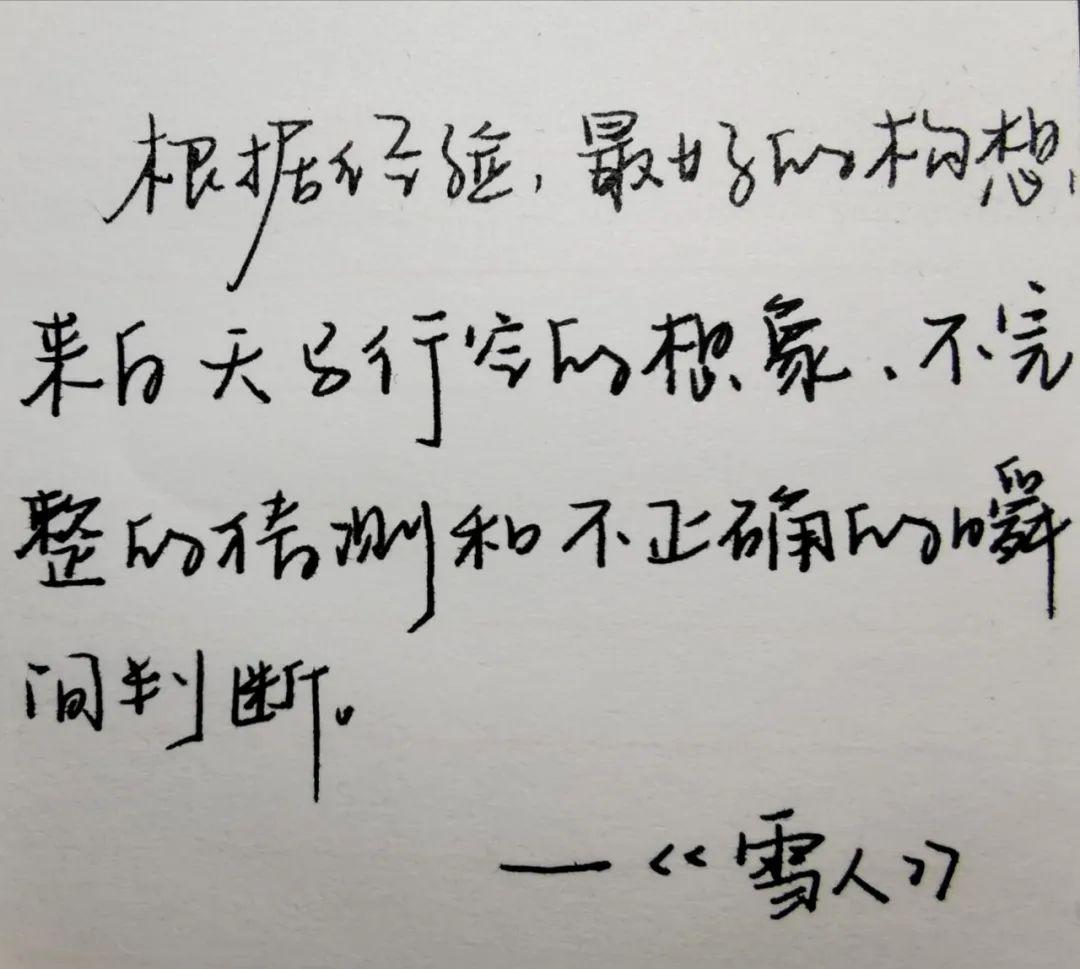 根据经验，最好的构想，
来自天马行空的想象、不完
整的猜测和不正确的瞬
间判断。
—《雪人》